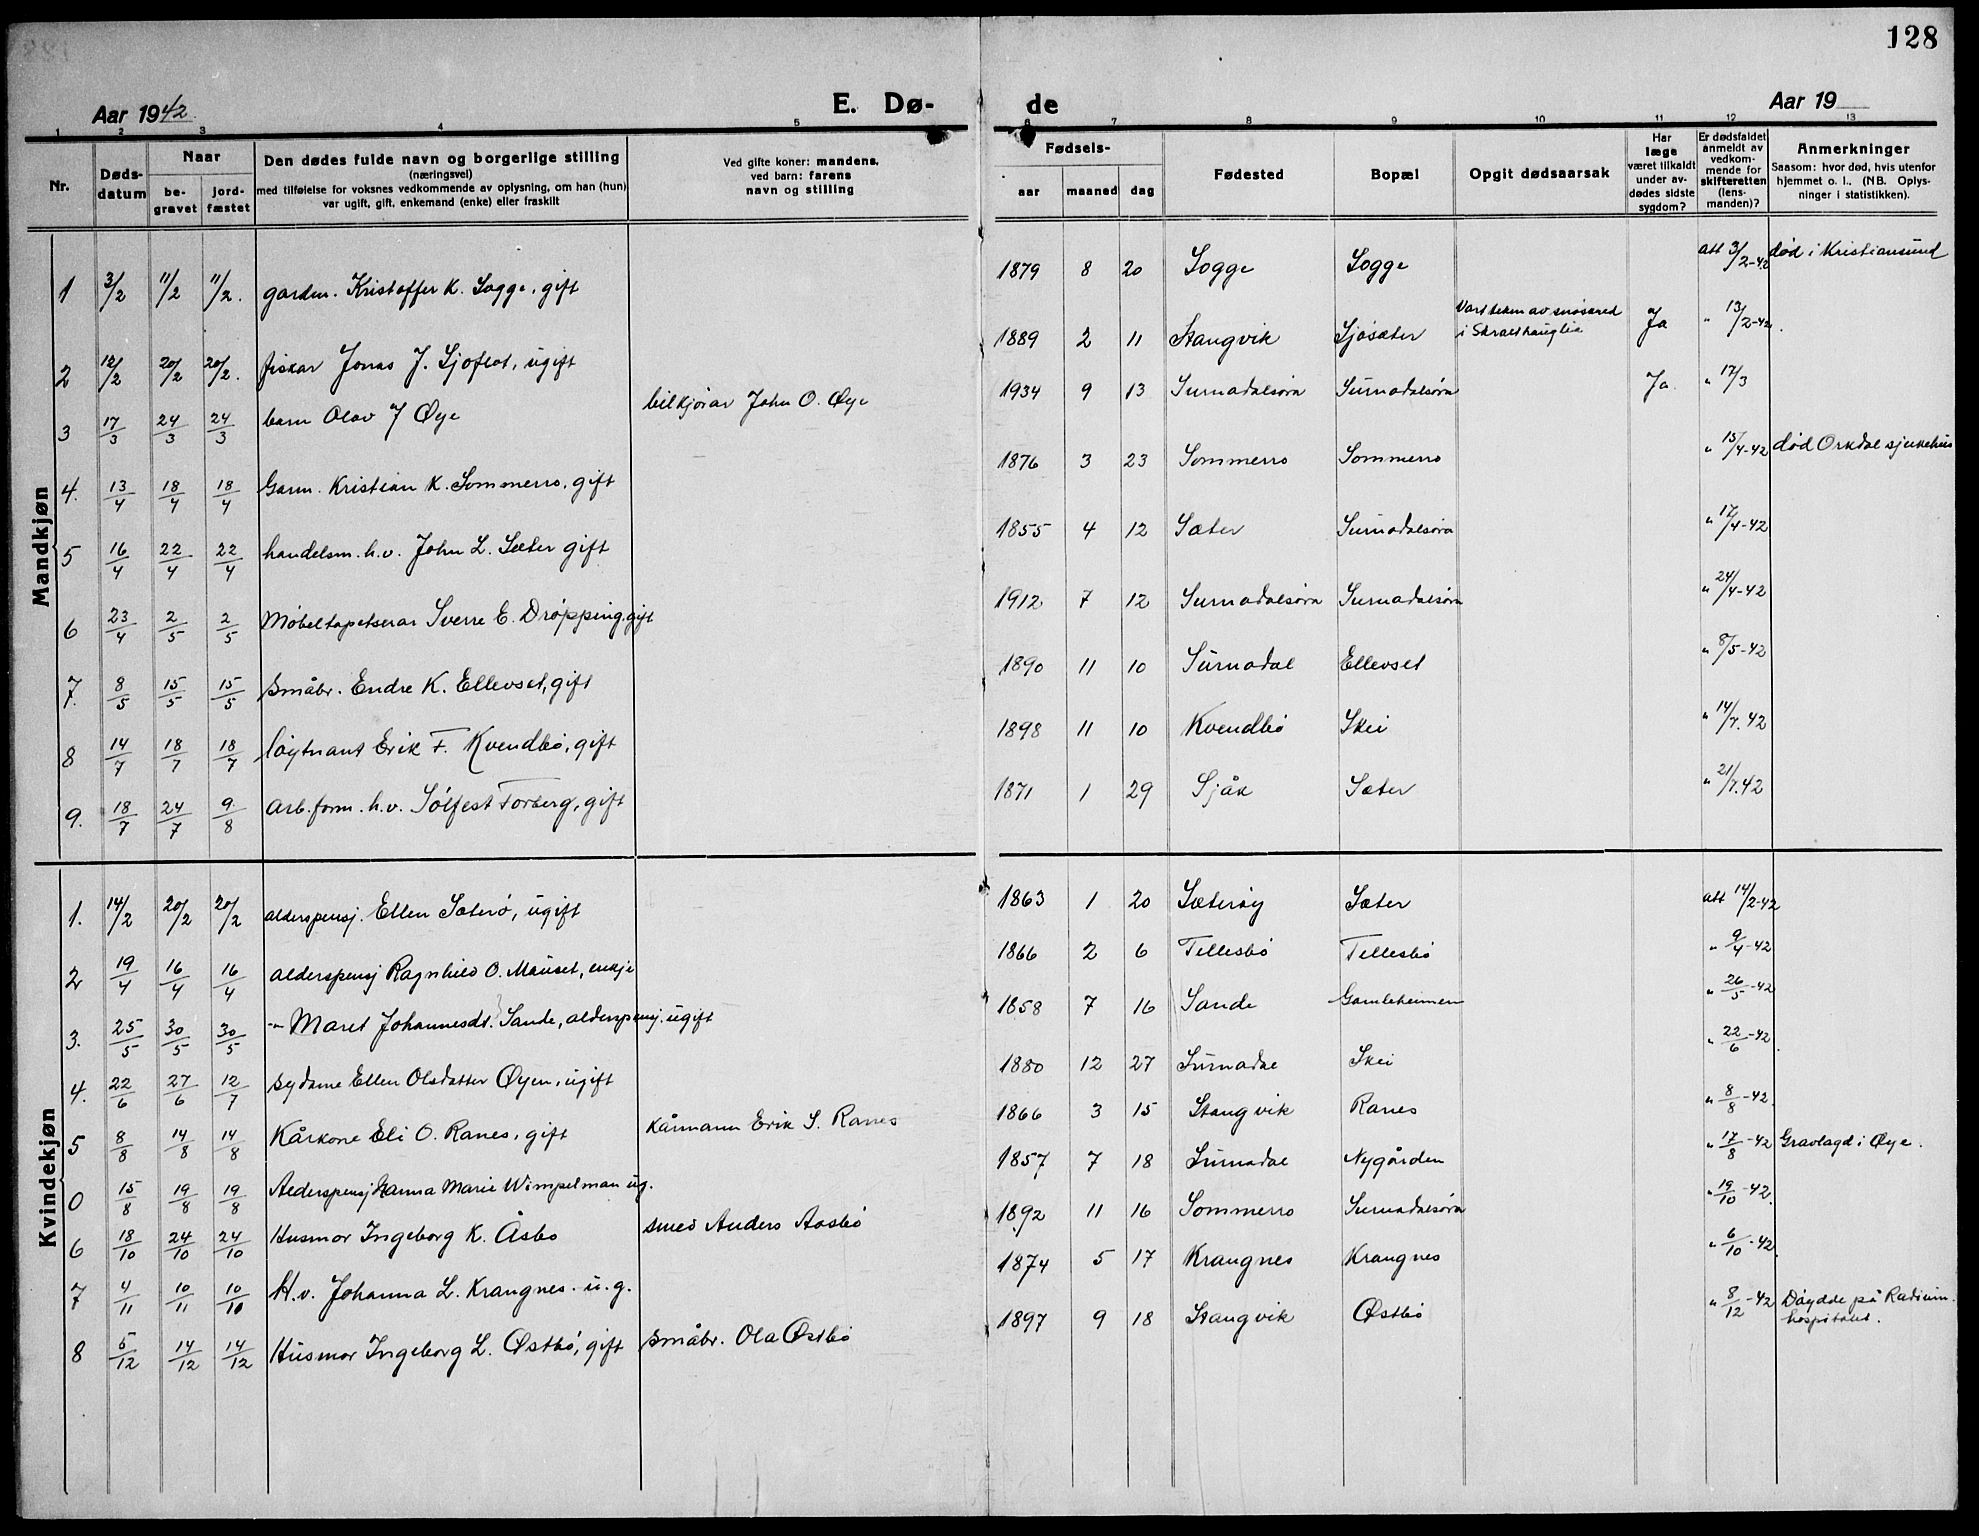 128
Aar 1942 E. Dø- de Aar 19
1 2 3 4 5 6 7 8 9 10 11 12 13
Nr. Dødsdatum Naar begravet jordfæstet
Den dødes fulde navn og borgerlige stilling
(næringsvei)
med tilføielse for voksnes vedkommende av oplysning, om han (hun)
var ugift, gift, enkemand (enke) eller fraskilt
Ved gifte koner: mandens,
ved barn: farens
navn og stilling
Fødsels- aar maaned dag
Fødested Bopæl Opgit dødsaarsak
Har læge været tilkaldt under avdødes sidste sygdom?
Er dødsfaldet anmeldt av vedkommende for skifteretten (lensmanden)?
Anmerkninger
Saasom: hvor død, hvis utenfor hjemmet o. l.. (NB. Oplysninger i statistikken).
Mandkjøn
1 3/2 11/2 11/2. gardm. Kristoffer K. Sogge, gift 1879 8 20 Sogge Sogge att 3/2-42 død i Kristiansund
2 12/2 20/2 20/2. fiskar Jonas J. Sjøflot, ugift 1889 2 11 Stangvik Sjøsæter Vart teken av snøskred i Ja " 13/2-42.
3 17/3 24/3 24/3 barn Olav J Øye bilkjørar John O. Øye 1934 9 13 Surnadalsøra Surnadalsøra Ja. " 17/3
4. 13/4 18/4 18/4 Garm. Kristian K. Sommerro, gift 1876 3 23 Sommerro Sommerro " 15/4-42 død Orkdal sjukehus
5 16/4 22/4 22/4 handelsm. h.v. John L. Sæter gift 1855 4 12 Sæter Surnadalsøra " 17/4-42
6 23/4 2/5 2/5 Møbeltapetserar Sverre E. Drøpping, gift 1912 7 12 Surnadalsøra Surnadalsøra " 24/4-42
7. 8/5 15/5 15/5 småbr. Endre K. Ellevset, gift 1890 11 10 Surnadal Ellevset " 8/5-42
8 14/7 18/7 18/7 løytnant Erik F. Kvendbø, gift 1898 11 10 Kvendbø Skei " 14/7.42
9. 18/7 24/7 9/8 arb. form. h.v. Sølfest Torberg, gift 1871 1 29 Sjåk Sæter " 21/7.42
Kvindekjøn
1. 14/2 20/2 20/2 alderspensj. Ellen Sæterø, ugift 1863 1 20 Sæterøy Sæter att 14/2-42
2 19/4 16/4 16/4 alderspensj Ragnhild O. Mauset, enkje 1866 2 6 Tellesbø Tellesbø " 9/4-42
3. 25/5 30/5 30/5 -"- Maret Johannesdt. Sande, alderspensj. ugift 1858 7 16 Sande Gamleheimen " 26/5-42
4. 22/6 27/6 12/7 sydame Ellen Olsdatter Øyen, ugift 1880 12 27 Surnadal Skei " 22/6-42.
5 8/8 14/8 14/8 Kårkone Eli O. Ranes, gift kårmann Erik S. Ranes 1866 3 15 Stangvik Ranes " 8/8-42.
0 15/8 19/8 19/8 Alderspensj Hanna Marie Wimpelman ug. 1857 7 18 Surnadal Nygården " 17/8-42 Gravlagd i Øye.
6 18/10 24/10 24/10 Husmor Ingeborg K. Åsbø smed Anders Aasbø 1892 11 16 Sommerro Surnadalsøra " 19/10-42.
7 4/11 10/11 10/10 H.v. Johanna L. Krangnes. u.g. 1874 5 17 Krangnes Krangnes " 6/10-42.
8 5/12 14/12 14/12 Husmor Ingeborg L. Østbø, gift småbr. Ola Østbø 1897 9 18 Stangvik Østbø " 8/12-42 Døydde på Radiumhospitalet.